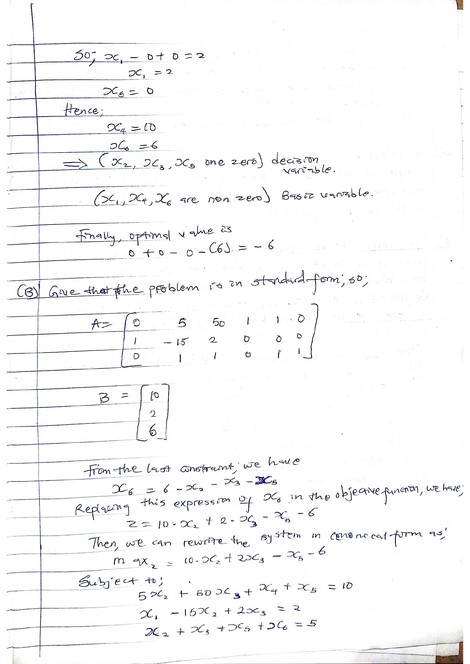 So; x₁ - 0 + 0 = 2
x₁ = 2
x₅ = 0
Hence;
x₄ = 10
x₆ = 6
⟹ (x₂, x₃, x₅ one zero) decision variable.
(x₁, x₄, x₆ are non zero) Basic variable.
Finally, optimal value is
0 + 0 - 0 - (6) = -6
(B) Give the problem is in standard form; so;
A = [0 5 50 1 1 0
1 -15 2 0 0 0
0 1 1 0 1 1]
B = [10
2
6]
From the last constraint; we have
x₆ = 6 - x₂ - x₃ - x₅
Replacing this expression of x₆ in the objective function, we have;
z = 10·x₂ + 2·x₃ - x₅ - 6
Then, we can rewrite the system in canonical form as;
max₂ = 10·x₂ + 2x₃ - x₅ - 6
Subject to;
5x₂ + 50x₃ + x₄ + x₅ = 10
x₁ - 15x₂ + 2x₃ = 2
x₂ + x₃ + x₅ + x₆ = 5